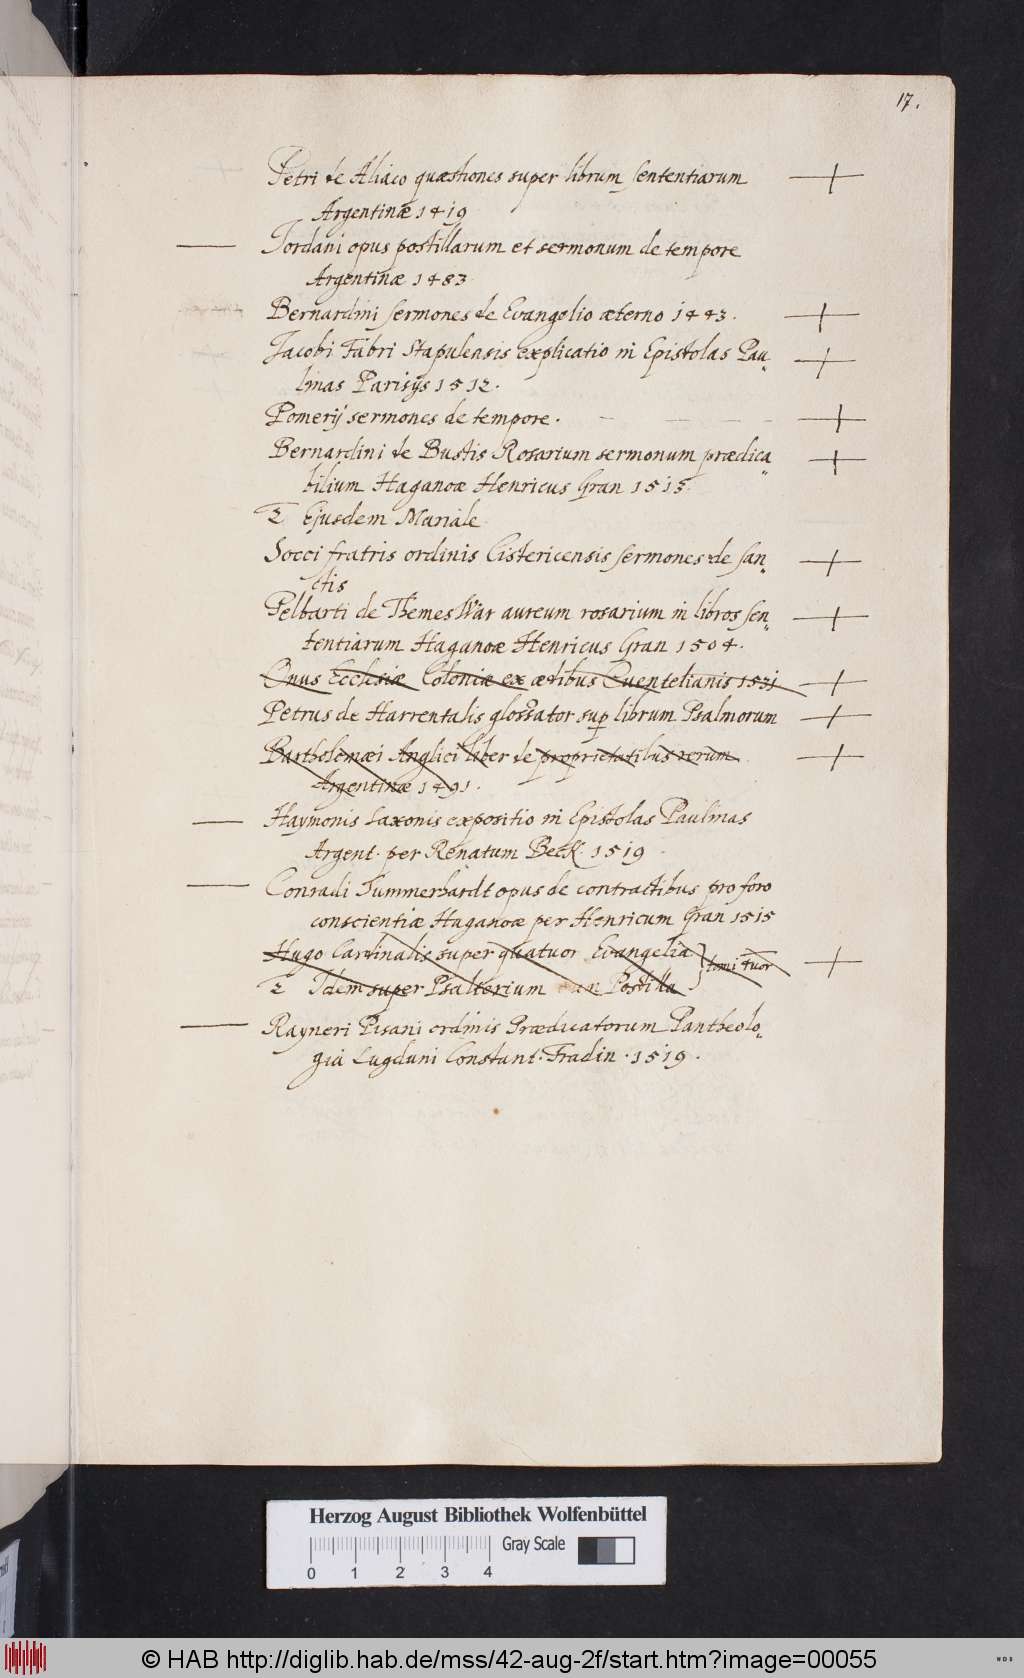 17.
Petri de Aliaco quæstiones super librum sententiarum
Argentinæ 1419
Jordani opus postillarum et sermonum de tempore
Argentinæ 1483
Bernardini sermones de Evangelio æterno 1443.
Jacobi Fabri Stapulensis explicatio in Epistolas Pau„
linas Parisijs 1512.
Pomerij sermones de tempore.
Bernardini de Bustis Rosarium sermonum prædica„
bilium Haganoæ Henricus Gran 1515.
Ejusdem Mariale
Socci fratris ordinis Cistericensis sermones de san„
ctis
Pelbarti de Themeswar aureum rosarium in libros sen„
tentiarum Haganoæ Henricus Gran 1504.
Onus Ecclesiæ Coloniæ ex ædibus Quentelianis 1531
Petrus de Harrentalis glossator sup librum Psalmorum
Bartholemæi Anglici liber de proprietatibus rerum
Argentinæ 1491.
Haymonis Saxonis expositio in Epistolas Paulinas
Argent. per Renatum Beck. 1519
Conradi Summerhardt opus de contractibus pro foro
conscientiæ Haganoæ per Henricum Gran 1515
Hugo Cardinalis super quatuor Evangelia } tomi 4uor
Idem super Psalterium Postilla
Rayneri Pisani ordinis Prædicatorum Pantheolo„
gia Lugduni Constant. Fradin. 1519.
Herzog August Bibliothek Wolfenbüttel
Gray Scale
0 1 2 3 4
© HAB http://diglib.hab.de/mss/42-aug-2f/start.htm?image=00055